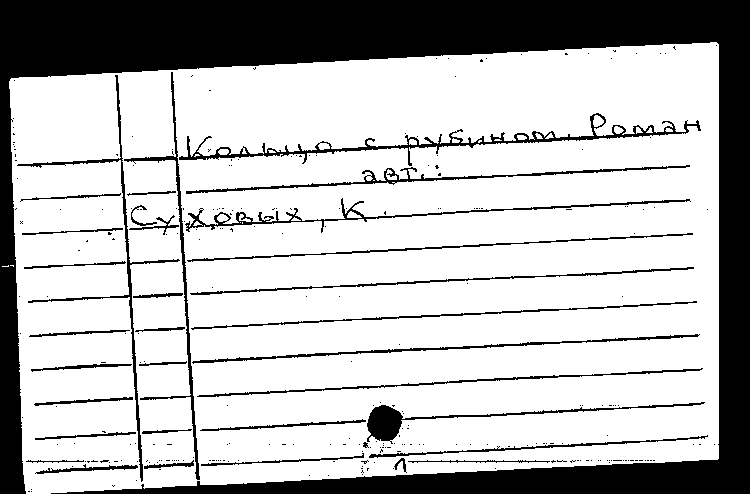 Кольцо с рубином. Роман
авт.:
Суховых, К.